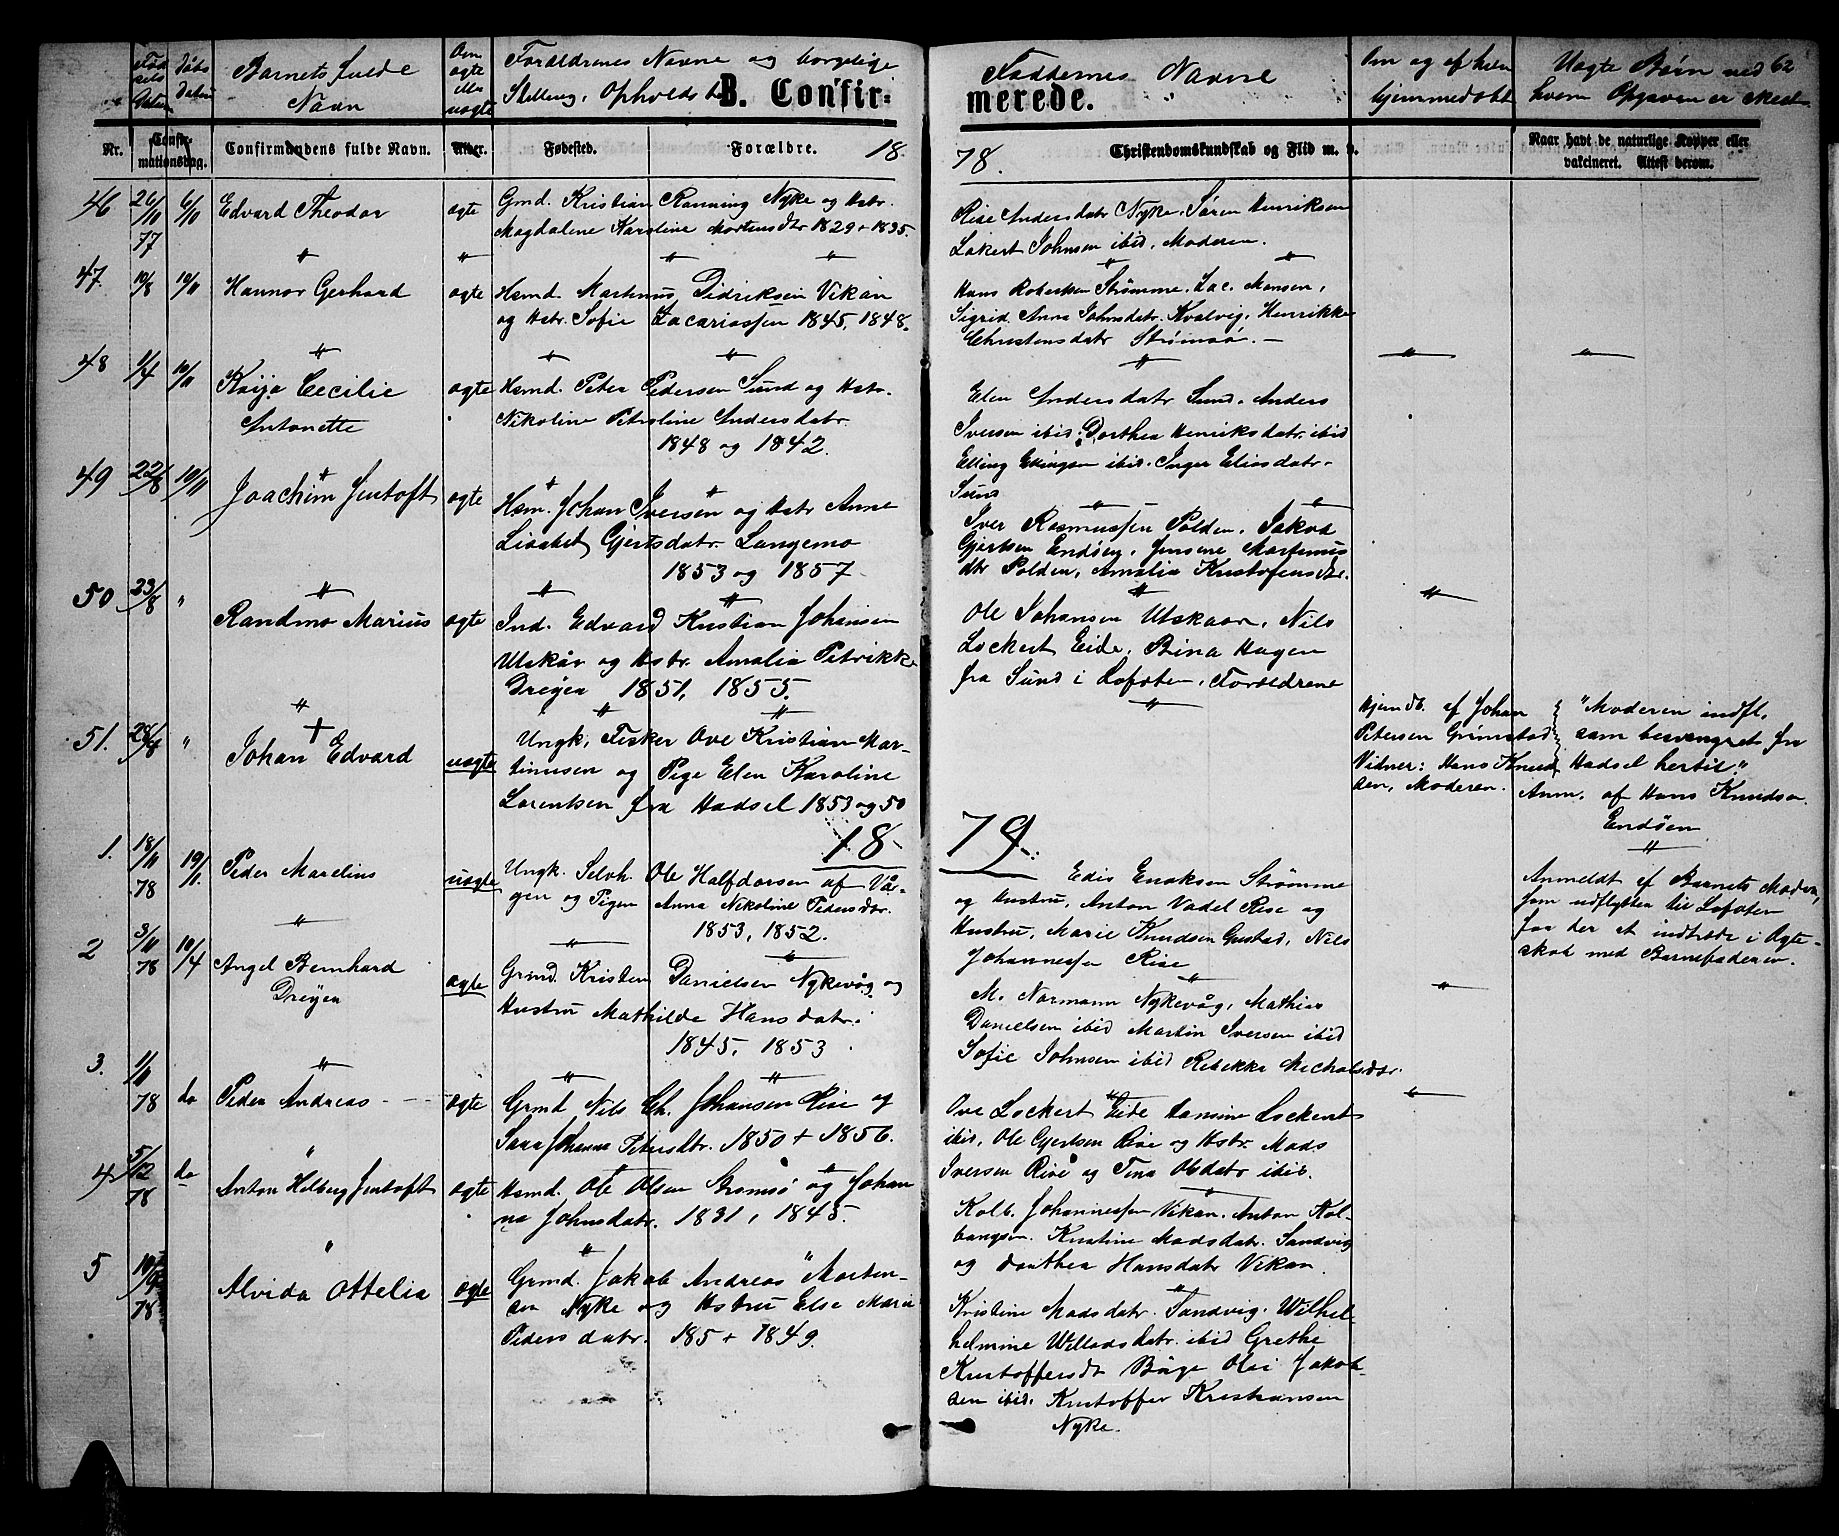 Fød
sels
Datum
Døbs
datum
Barnets fulde
Navn
Om
ægte
eller
uægte
Forældrenes Navne og borgelige
Stilling, Opholdsted
B. Confir-
Nr.
Confir-
mationsdag.
Confirmandens fulde Navn.
Alder.
Fødested.
Forældre.
18
46 26/10 77 6/11 Edvard Theodor ægte Gmd. Kristian Rønning Nyke og Hstr.
Magdalene Karoline Mortensdtr 1829 + 1835.
47 10/8 10/11 Hannor Gerhard ægte Hsmd. Martinus Didriksen Vikan
og Hstr. Sofie Zacariassen 1845, 1848.
48 1/4 10/11 Kaija Cecilie ægte Hsmd. Peter Pedersen Sund og Hstr.
Antonette Nikoline Petroline Andersdatr.
1848 og 1842.
49 22/8 10/11 Joachim Jentoft ægte Hsm. Johan Iversen og Hstr Anne
Lisabet Gjertsdatr. Langemo
1853 og 1857.
50 23/8 " Randmo Marius ægte Ind. Edvard Kristian Johansen
Utskår og Hstr. Amalia Petrikke
Dreyer 1851, 1855.
51. 28/4 " Johan Edvard uægte Ungk. Fisker Ove Kristian Mar-
tinusen og Pige Elen Karoline
Lorentsen fra Hadsel 1853 og 50
18
1. 18/11 78 19/1. Peder Marelius uægte Ungk. Selvh. Ole Halfdorsen af Vå-
gen og Pigen Anna Nikoline Pedersdtr.
1853, 1852.
2 3/11 78 10/4 Angel Bernhard ægte Grmd. Kristen Danielsen Nykevåg og
Dreyer Hustru Mathilde Hansdatr.
1845, 1853
3. 1/11 78 do Peder Andreas ægte Grmd Nils Ch. Johansen Rise og
Sara Johanna Petersdtr. 1850 + 1856.
4 5/12 78 do Anton Hilberg Jentoft ægte Hsmd. Ole Olsen Strømsø og Johan
na Johnsdatr. 1831, 1845.
5 10/9 78 Alvida Ottelia ægte Grmd. Jakob Andreas Morten-
sen Nyke og Hstru Else Marie
Pedersdatr. 185 + 1849.
Faddernes Navne
merede.
Om og af hvem
hjemmedøbt
Uægte Børn ved 62
hvem Opgaven er skeet
78.
Christendomskundskab og Flid m. v.
Naar havt de naturlige Kopper eller
vakcineret. Attest derom.
Rise Andersdatr Nyke. Søren Henriksen
Lokert Johnsen ibid, Moderen.
Hans Robertsen Strømme, Zac. Monsen,
Sigrid Anna Johnsdatr. Kvalvig, Henrikke
Christensdatr Strømsø. —
Elen Andersdatr Sund. Anders
Iversen ibid, Dorthea Henriksdatr. ibid
Elling Ellingsen ibid. Inger Eliasdatr.
Sund
Iver Rasmussen Polden, Jakob
Gjertsen Endøen, Jensine Martinus
dtr Polden, Amalia Kristofensdtr.
Ole Johansen Utskaar, Nils
Lockert Eide, Bina Hagen
fra Sund i Lofoten, Forældrene
Hjemdb. af Johan
Petersen Grimstad
Vidner: Hans Knud
sen, Moderen.
"Moderen indfl.
som besvangret fra
Hadsel hertil"
Anm. af Hans Knudsen
Endøen
79
Edis Enoksen Strømme
og Hustru, Anton Vadel Rise og
Hustru, Marie Knudsen Gustad, Nils
Johannessen Rise
Anmeldt af Barnets Moder,
som udflytter til Lofoten
for der at indtræde i Ægte-
skab med Barnefaderen.
M. Normann Nykevåg, Mathias
Danielsen ibid Martin Iversen ibid
Sofie Johnsen ibid Rebekka Michalsdtr.
Ove Lockert Eide Hansine Lockert
ibid, Ole Gjertsen Rise og Hstr. Mads
Iversen Rise og Tina Olsdatr ibid.
Kolb. Johannessen Vikan. Anton Kol-
bangsen. Kristine Madsdatr. Sandvig
og Dorthea Hansdatr Vikan.
Kristine Madsdatr. Sandvig. Wilhel-
helmine Willadsdatr. ibid Grethe
Kristoffersdt Båge Olai Jakob-
sen ibid. Kristoffer Kristiansen
Nyke.